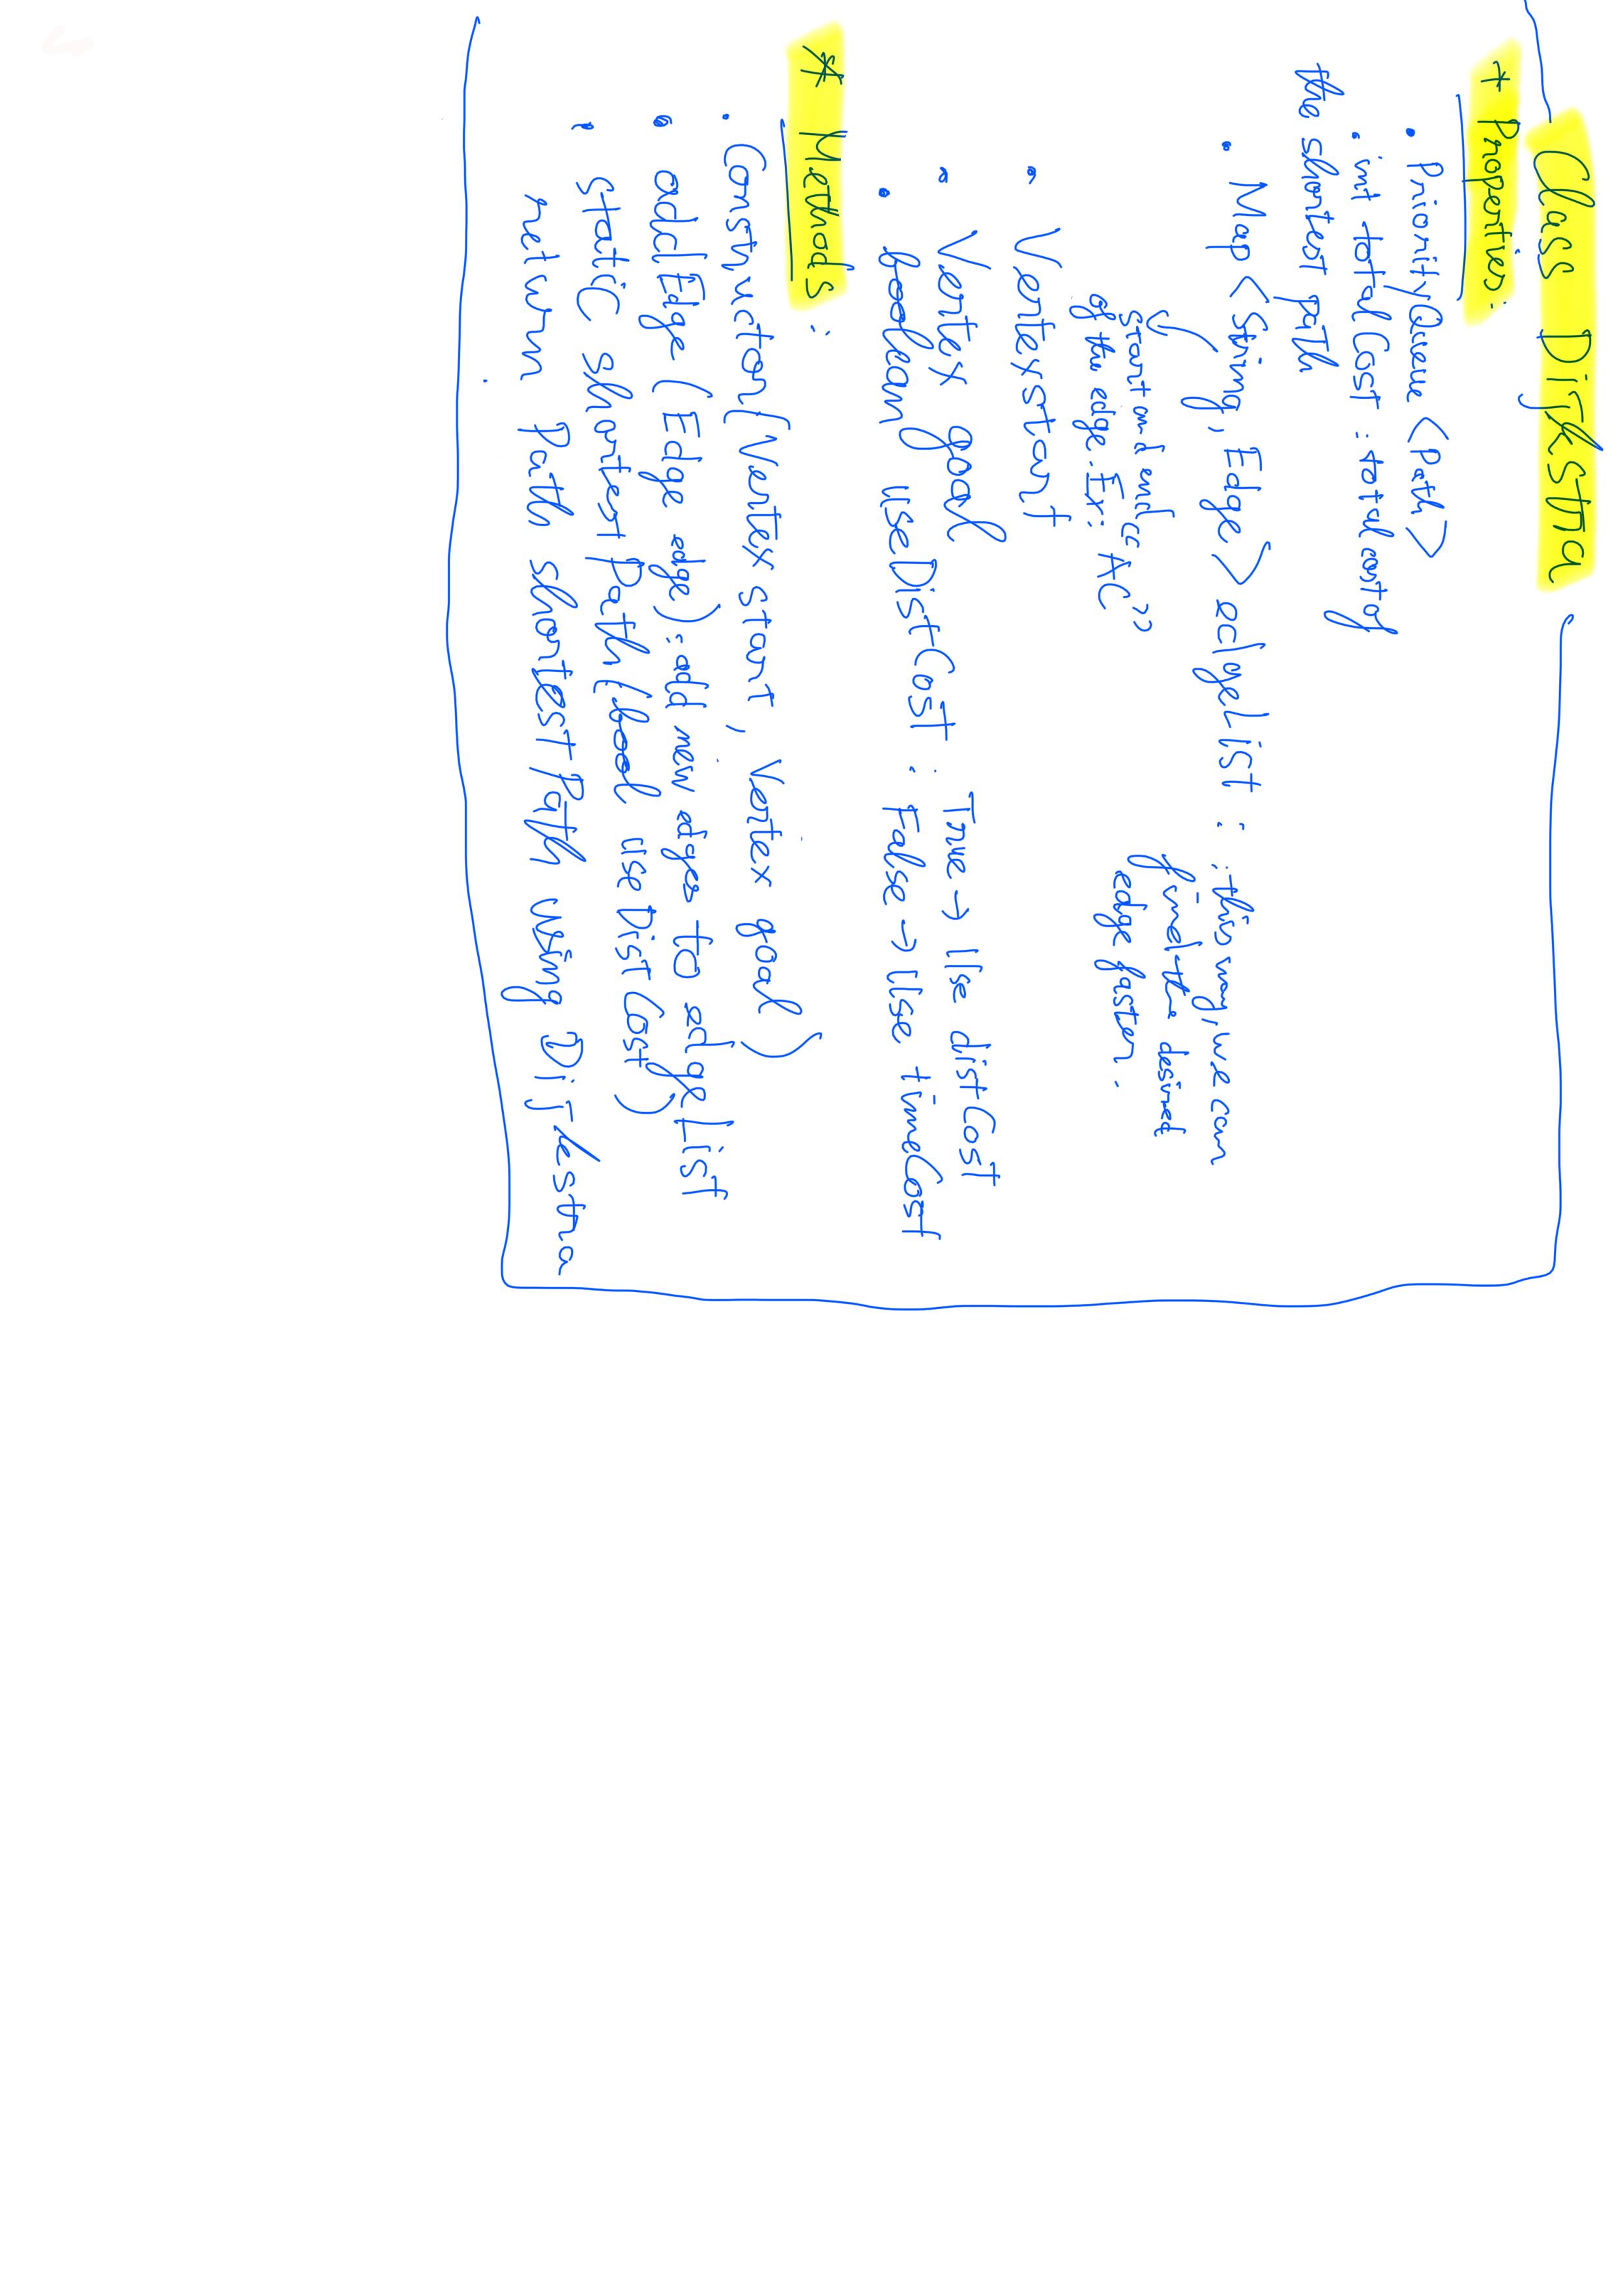 Class Dijkstra
+ Properties:
. PriorityQueue <Path>
. int totalCost : total cost of
the shortest path
. Map <String, Edge> edgeList : : this way, we can
find the desired
edge faster.
start and end
of the edge. Ex: "AC"
. Vertex start
. Vertex goal
. boolean useDistCost : True → Use distCost
False → Use timeCost
* Methods :
. Constructor (Vertex start, Vertex goal)
. addEdge (Edge edge) : add new edges to edgeList
. static shortestPath (bool useDistCost)
return Path shortestPath using Dijkstra